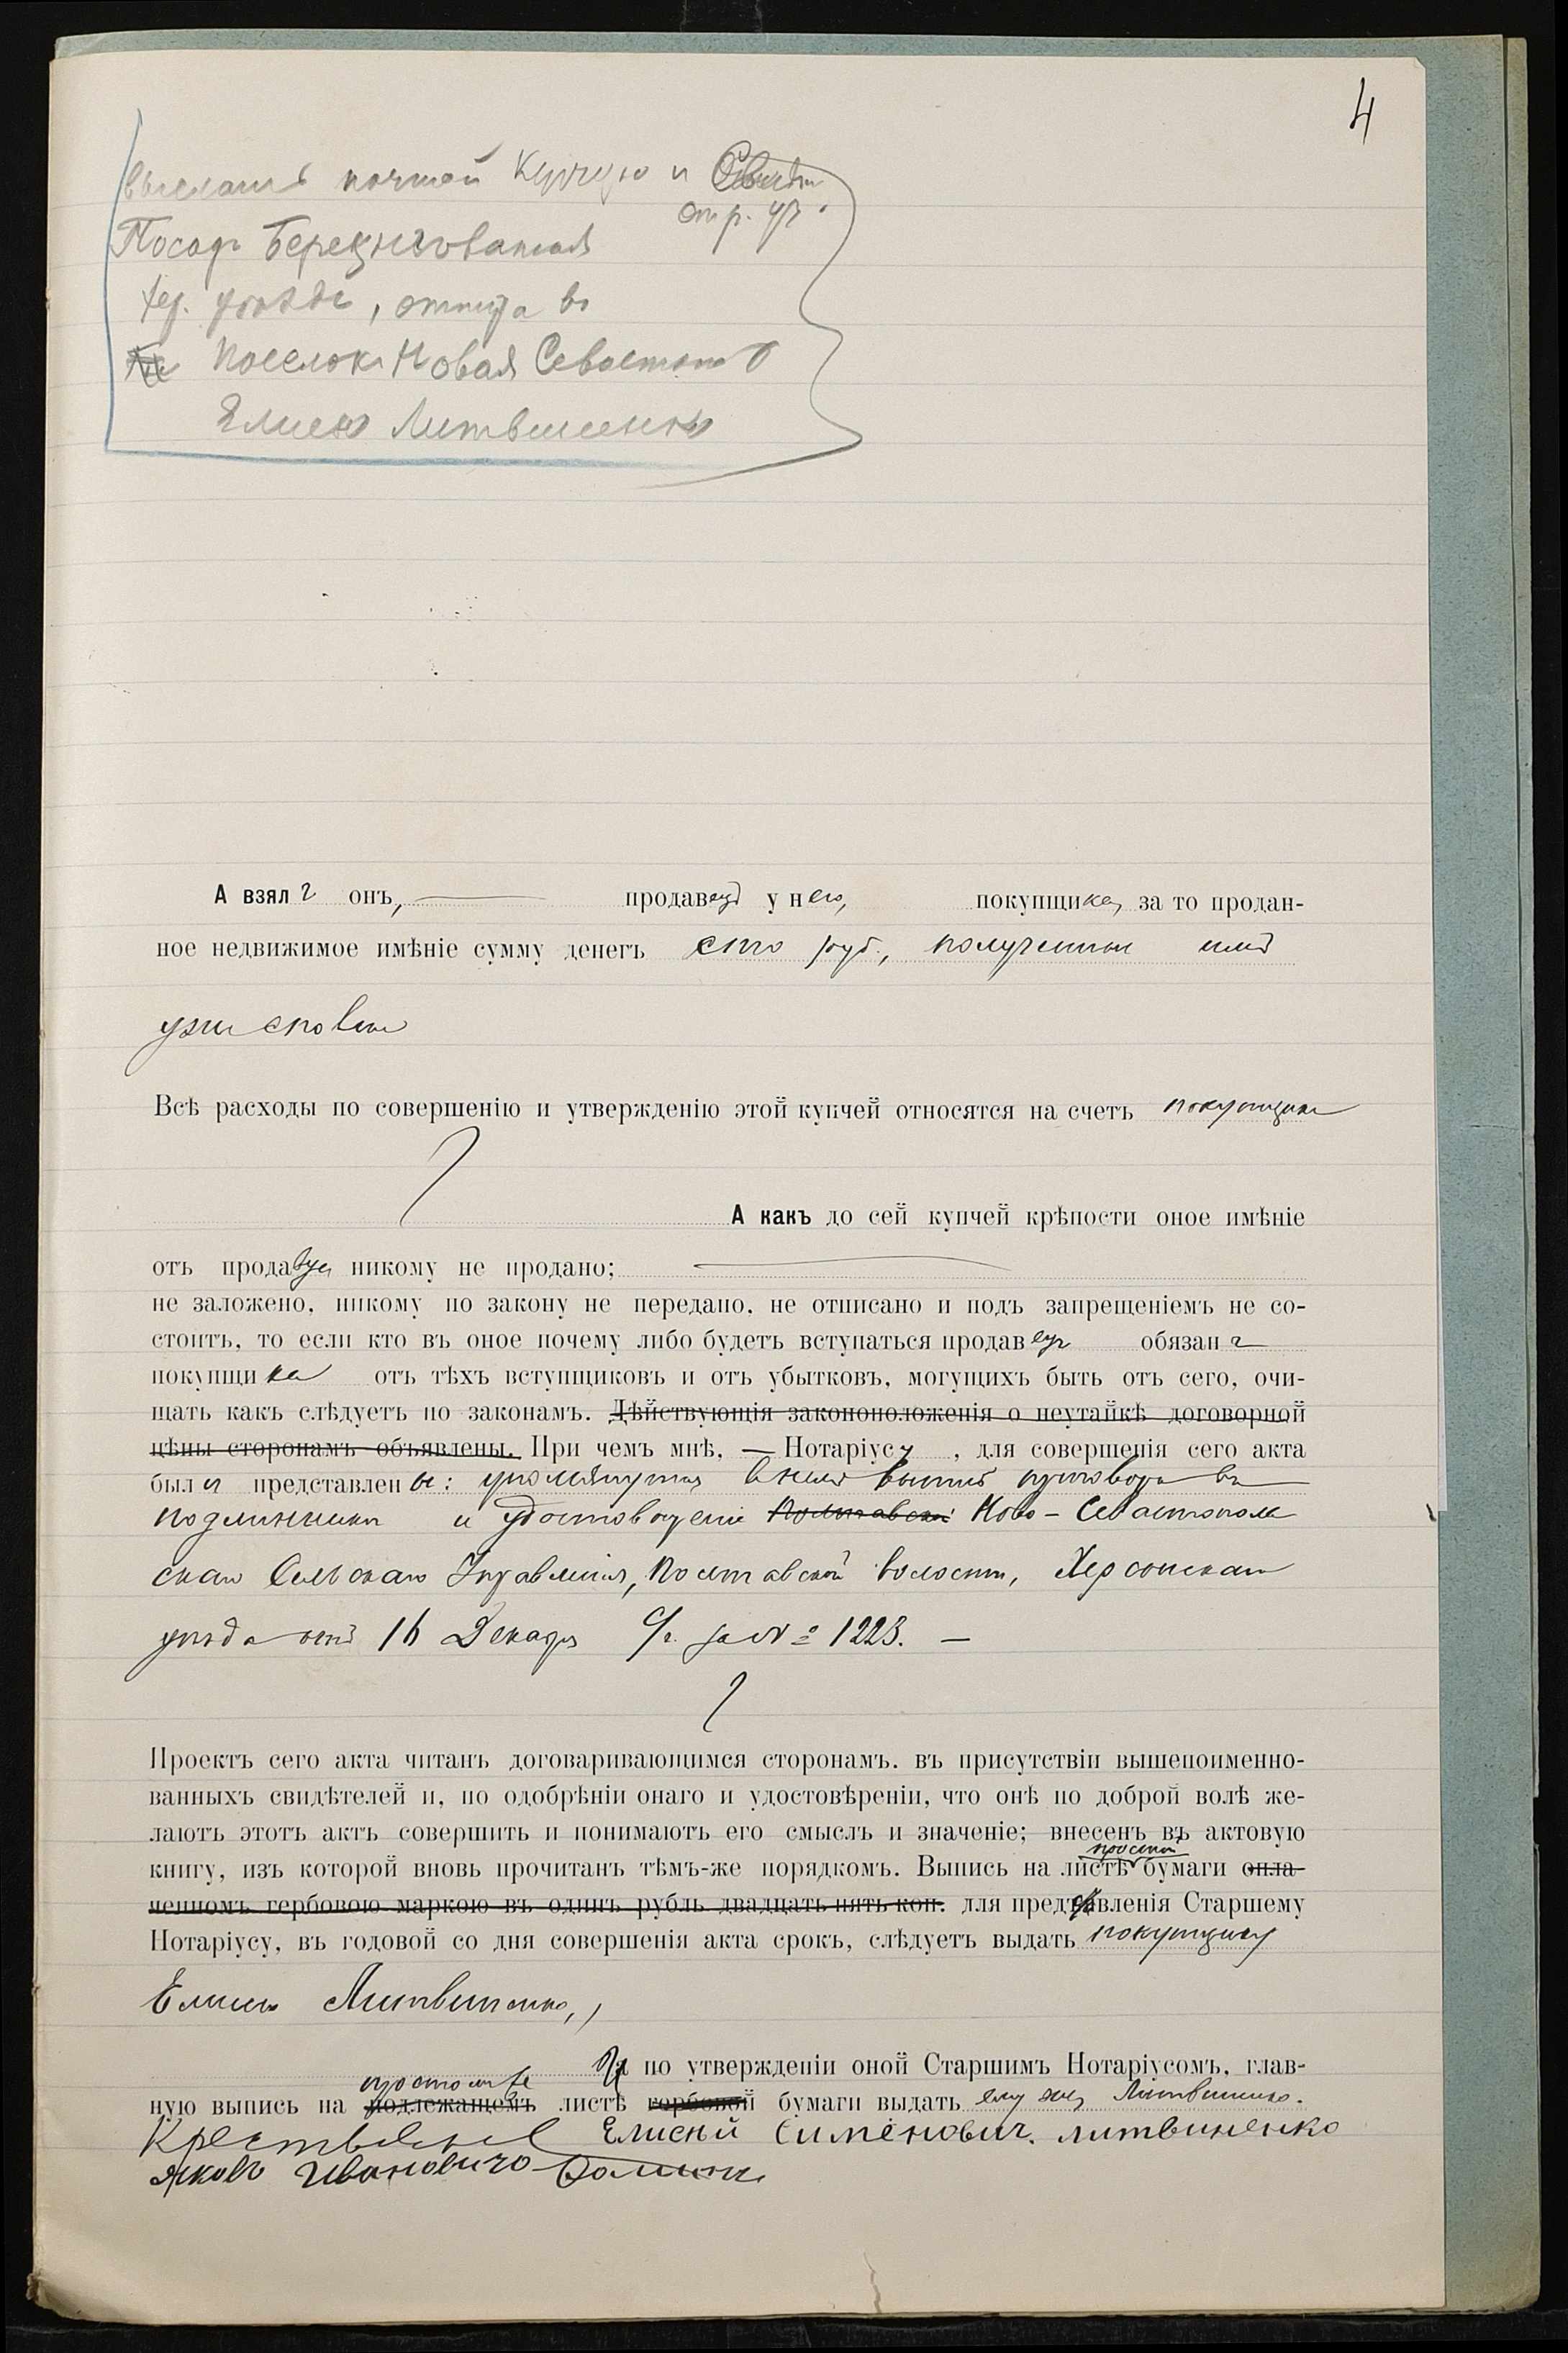 4
выслать почтой Купчую и
Посадъ Березнеговатая
Хер. уѣзда, оттуда въ
поселокъ Новая Севастополь
Елисею Литвиненко
А взялъ онъ, продавецъ у него, покупщика, за то продан-
ное недвижимое имѣніе сумму денегъ сто руб., полученныя имъ
уже сполна
Всѣ расходы по совершенію и утвержденію этой купчей относятся на счетъ покупщика
А какъ до сей купчей крѣпости оное имѣніе
отъ продавца никому не продано;
не заложено, никому по закону не передано, не отписано и подъ запрещеніемъ не со-
стоитъ, то если кто въ оное почему либо будетъ вступаться продавецъ обязанъ
покупщика отъ тѣхъ вступщиковъ и отъ убытковъ, могущихъ быть отъ сего, очи-
щать какъ слѣдуетъ по законамъ. Дѣйствующія законоположенія о неутайкѣ договорной
цѣны сторонамъ объявлены. При чемъ мнѣ, — Нотаріусу, для совершенія сего акта
были представлены: упомянутая въ немъ выпись приговора въ
подлинникѣ и удостовѣреніе Полтавской Ново-Севастополь
скаго Сельскаго Управленія, Полтавской волости, Херсонскаго
уѣзда отъ 16 Декабря с/г. за № 1223. —
Проектъ сего акта читанъ договаривающимся сторонамъ, въ присутствіи вышепоименно-
ванныхъ свидѣтелей и, по одобрѣніи онаго и удостовѣреніи, что онѣ по доброй волѣ же-
лаютъ этотъ актъ совершить и понимаютъ его смыслъ и значеніе; внесенъ въ актовую
простой
книгу, изъ которой вновь прочитанъ тѣмъ-же порядкомъ. Выпись на листѣ бумаги опла-
ченномъ гербовою маркою въ одинъ рубль двадцать пять коп. для представленія Старшему
Нотаріусу, въ годовой со дня совершенія акта срокъ, слѣдуетъ выдать покупщику
Елисею Литвиненко,
и по утвержденіи оной Старшимъ Нотаріусомъ, глав-
простой же
ную выпись на подлежащемъ листѣ гербовой бумаги выдать ему же, Литвиненко.
Крестьяне Елисѣй Сименовичъ Литвиненко
Яковъ Ивановичъ